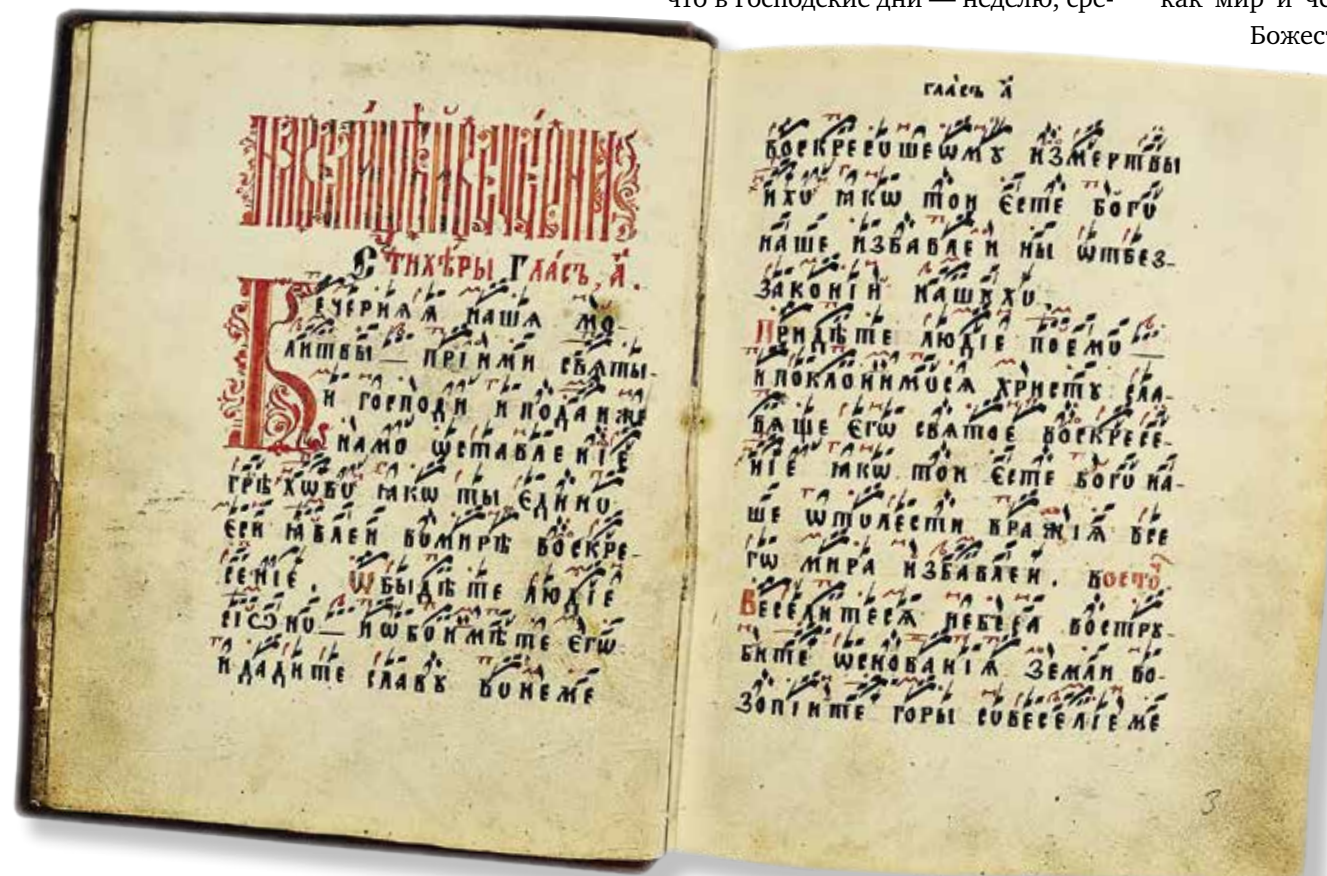 что в господские дни — неделю, сре-
как мир и че
Божест
На велицѣй вечерни
Стихѣры гласъ, а҃.
Вечерняя наша мо-
литвы — прїими святы-
и господи и подаиже
намо ѡставленїе
грѣхѡво ꙗкѡ ты єдино
еси ꙗвлеи вомирѣ воскре-
сенїе. Ѡбыдѣте людїе
сїѡно — иѡбоимѣте єгѡ
и дадите славꙋ вонеме
гласъ а҃
воскресошешмꙋ измертвы
ихо ꙗкѡ тои єсте бого
наше избавлеи ны ѡтбез-
законїи нашихо
Придѣте людїе поемо —
и поклонимося христꙋ сла-
вяще єгѡ святое воскресе-
нїе ꙗкѡ тои єсте бого на-
ше ѡтолести вражїя все
гѡ мира избавлеи. восто
Веселитеся небеса вострꙋ-
бите ѡснованїя земли во-
зопїите горы совеселїеме
3